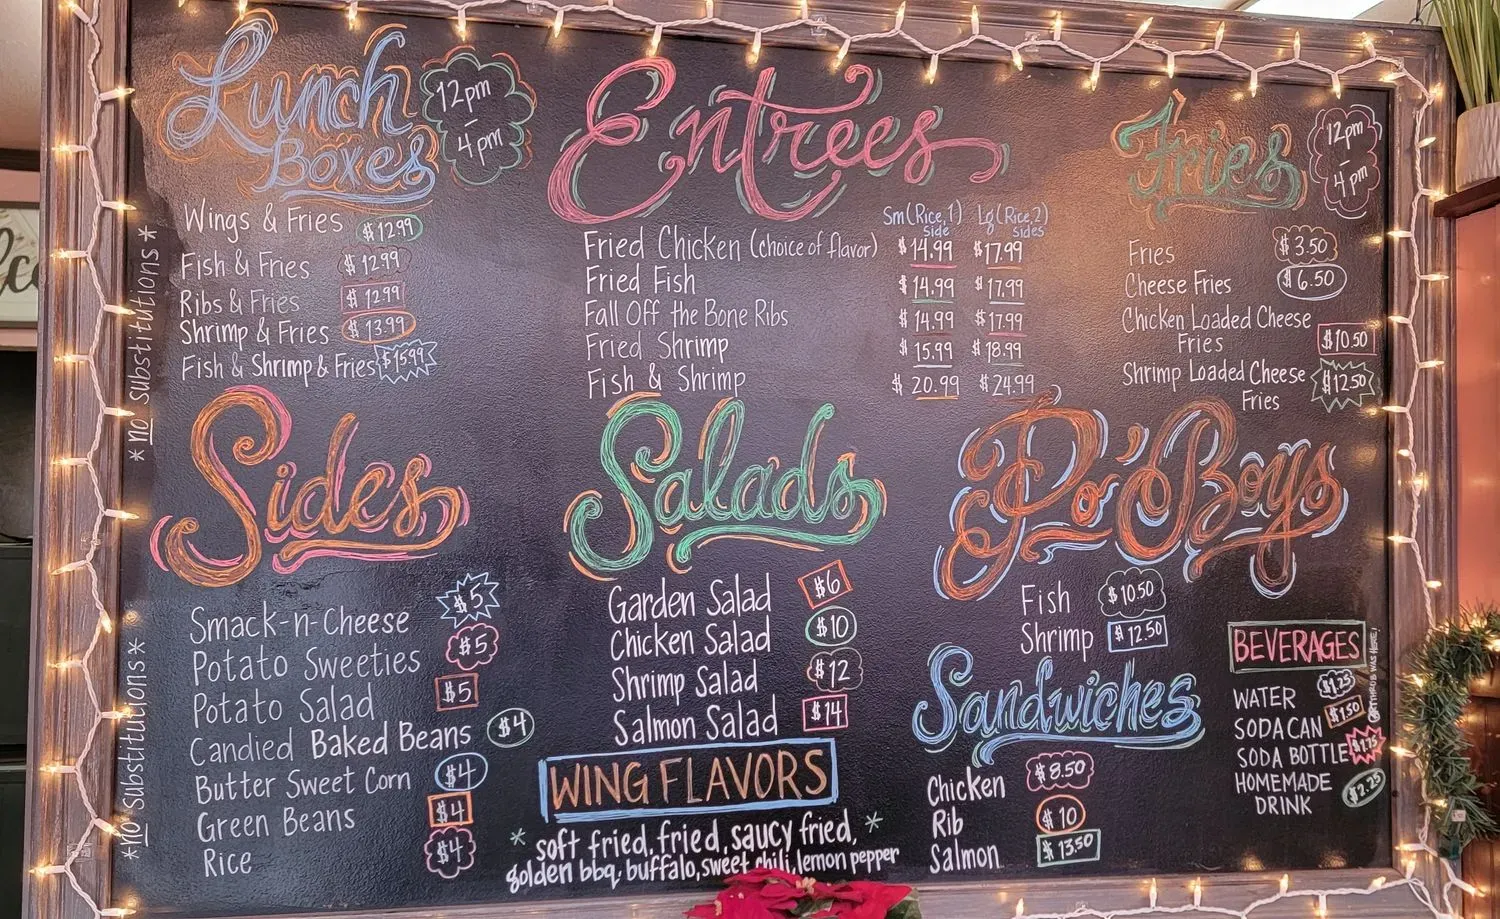 Lunch
Boxes
12pm
-
4pm
Wings & Fries $12.99
Fish & Fries $12.99
Ribs & Fries $12.99
Shrimp & Fries $13.99
Fish & Shrimp & Fries $15.99
*no substitutions*
Entrees
Sm(Rice,1) Lg(Rice,2)
side sides
Fried Chicken (choice of flavor) $14.99 $17.99
Fried Fish $14.99 $17.99
Fall Off the Bone Ribs $14.99 $17.99
Fried Shrimp $15.99 $18.99
Fish & Shrimp $20.99 $24.99
Fries
12pm
-
4pm
Fries $3.50
Cheese Fries $6.50
Chicken Loaded Cheese
Fries $10.50
Shrimp Loaded Cheese
Fries $12.50
Sides
Smack-n-Cheese $5
Potato Sweeties $5
Potato Salad $5
Candied Baked Beans $4
Butter Sweet Corn $4
Green Beans $4
Rice $4
*no Substitutions*
Salads
Garden Salad $6
Chicken Salad $10
Shrimp Salad $12
Salmon Salad $14
WING FLAVORS
* soft fried, fried, saucy fried, *
golden bbq, buffalo, sweet chili, lemon pepper
Po'Boys
Fish $10.50
Shrimp $12.50
Sandwiches
Chicken $8.50
Rib $10
Salmon $13.50
BEVERAGES
WATER $1.25
SODA CAN $1.50
SODA BOTTLE $1.75
HOMEMADE
DRINK $2.25
WAS HERE!